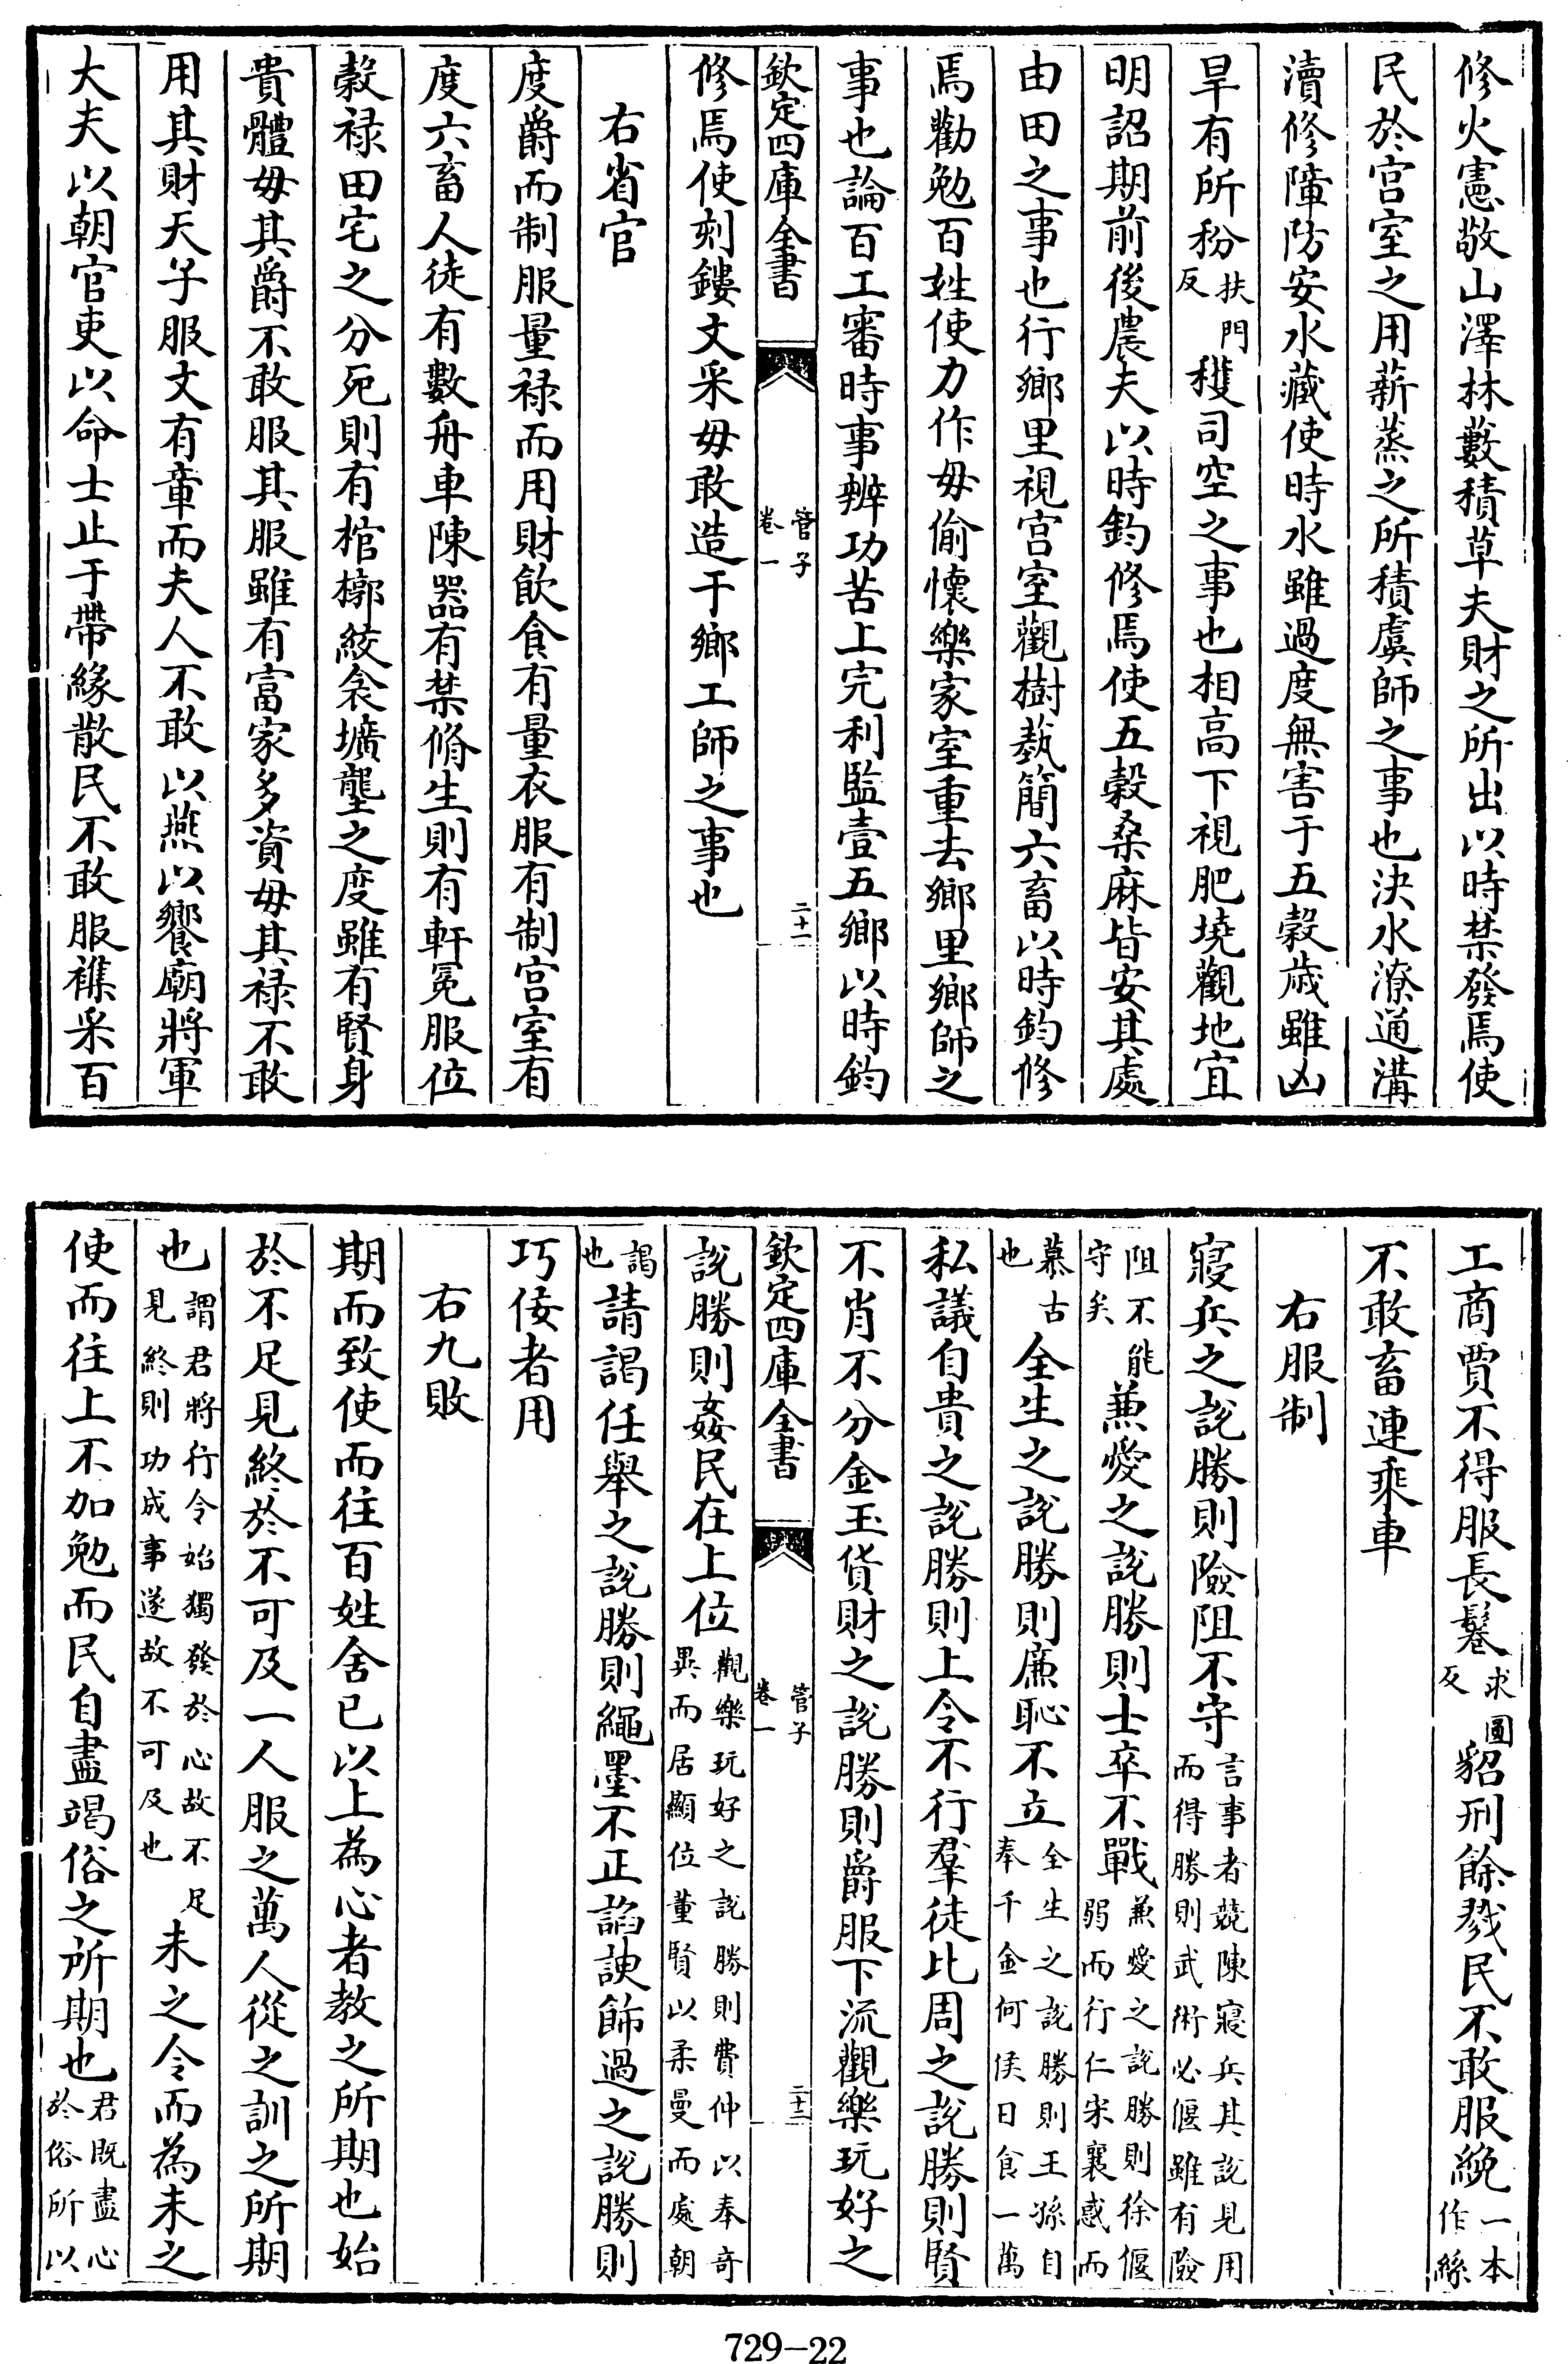 修火憲敬山澤林藪積草夫財之所出以時禁發焉使
民於宫室之用薪蒸之所積虞師之事也決水潦通溝
瀆修障防安水藏使時水雖過度無害于五穀歲雖凶
旱有所秎扶門反穫司空之事也相高下視肥墝觀地宜
明詔期前後農夫以時鈞修焉使五穀桑麻皆安其處
由田之事也行鄉里視宫室觀樹藝簡六畜以時鈞修
焉勸勉百姓使力作毋偷懷樂家室重去鄉里鄉師之
事也論百工審時事辨功苦上完利監壹五鄉以時鈞
欽定四庫全書 管子 卷一 二十一
修焉使刻鏤文采毋敢造于鄉工師之事也
右省官
度爵而制服量禄而用財飲食有量衣服有制宫室有
度六畜人徒有數舟車陳器有禁脩生則有軒冕服位
榖禄田宅之分死則有棺槨絞衾壙壟之度雖有賢身
貴體毋其爵不敢服其服雖有富家多資毋其禄不敢
用其財天子服文有章而夫人不敢以燕以饗廟將軍
大夫以朝官吏以命士止于帶緣散民不敢服襍采百
工商賈不得服長鬈求圓反貂刑餘戮民不敢服絻一本作絲
不敢畜連乘車
右服制
寢兵之說勝則險阻不守言事者競陳寢兵其說見用而得勝則武術必偃雖有險
阻不能守矣兼愛之說勝則士卒不戰兼愛之說勝則徐偃弱而行仁宋襄惑而
慕古也全生之說勝則廉恥不立全生之說勝則王孫自奉千金何侯日食一萬
私議自貴之說勝則上令不行羣徒比周之說勝則賢
不肖不分金玉貨財之說勝則爵服下流觀樂玩好之
欽定四庫全書 管子 卷一 二十二
說勝則姦民在上位觀樂玩好之說勝則費仲以奉奇異而居顯位董賢以柔曼而處朝
謁也請謁任舉之說勝則繩墨不正諂諛飾過之說勝則
巧佞者用
右九敗
期而致使而往百姓舍已以上為心者教之所期也始
於不足見終於不可及一人服之萬人從之訓之所期
也謂君將行令始獨發於心故不足見終則功成事遂故不可及也未之令而為未之
使而往上不加勉而民自盡竭俗之所期也君既盡心於俗所以
729-22